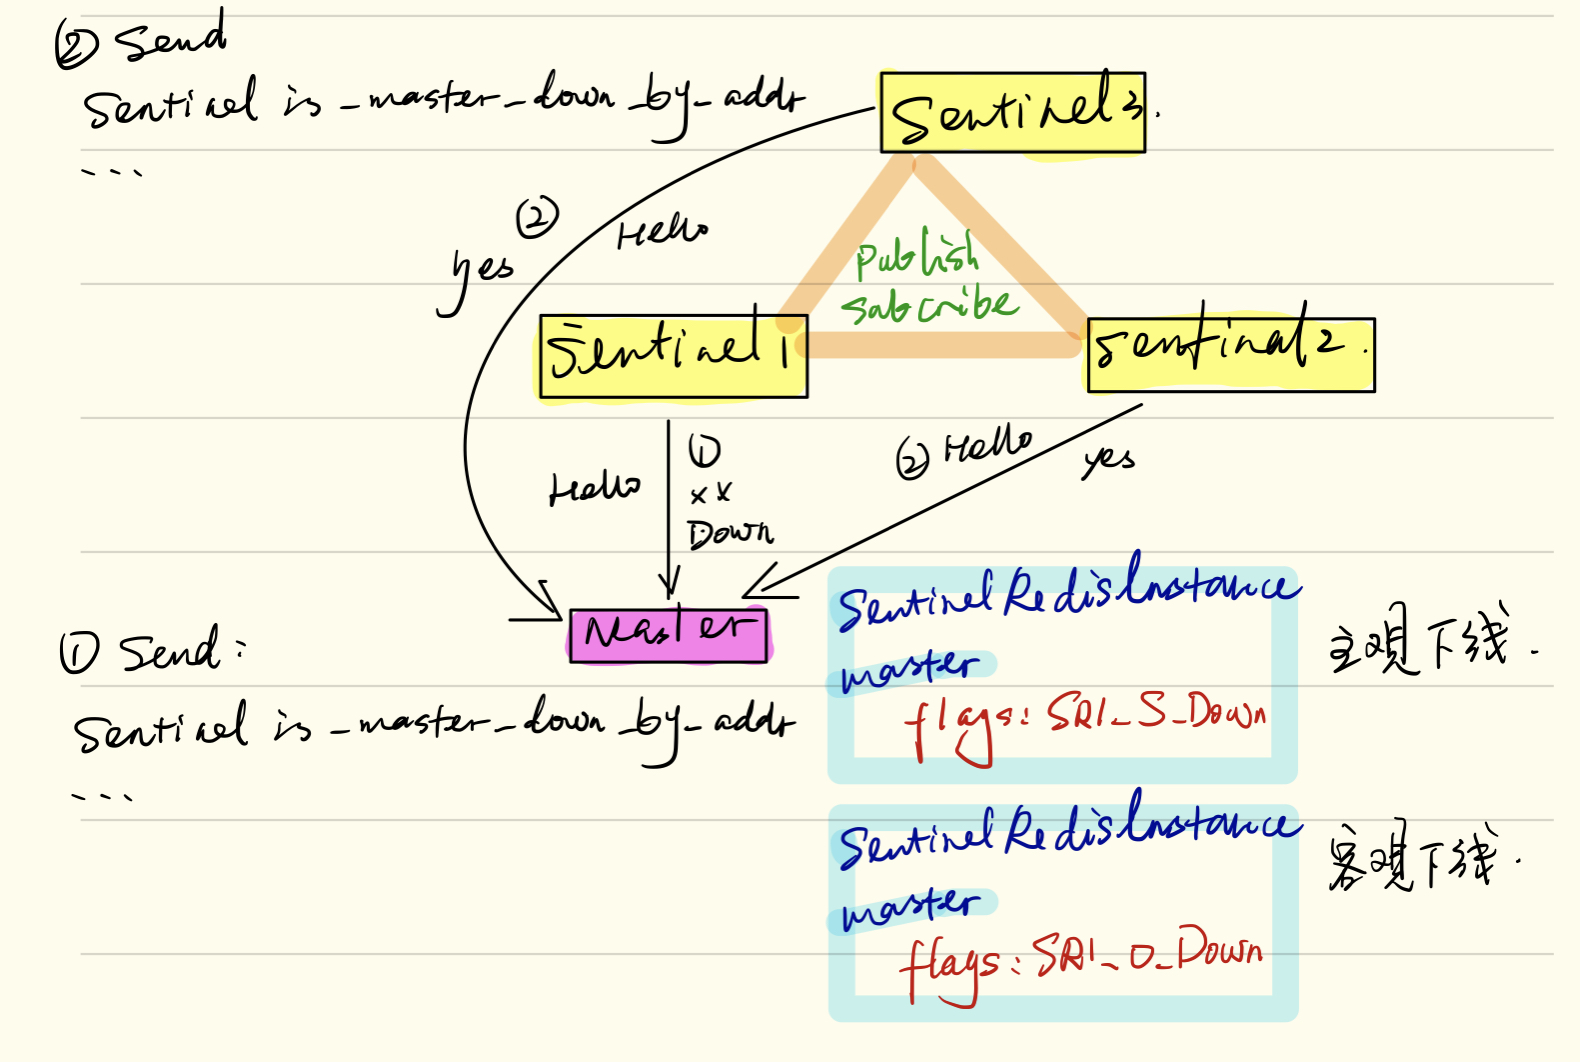 ② Send
Sentinel is_master_down_by_addr
...
Sentinel 3.
②
Hello
yes
publish
subcribe
Sentinel 1
sentinel 2.
Hello
①
××
Down
② Hello
yes
Master
① Send:
Sentinel is_master_down_by_addr
...
SentinelRedisInstance
master
flags: SRI_S_Down
主观下线.
SentinelRedisInstance
master
flags: SRI_O_Down
客观下线.